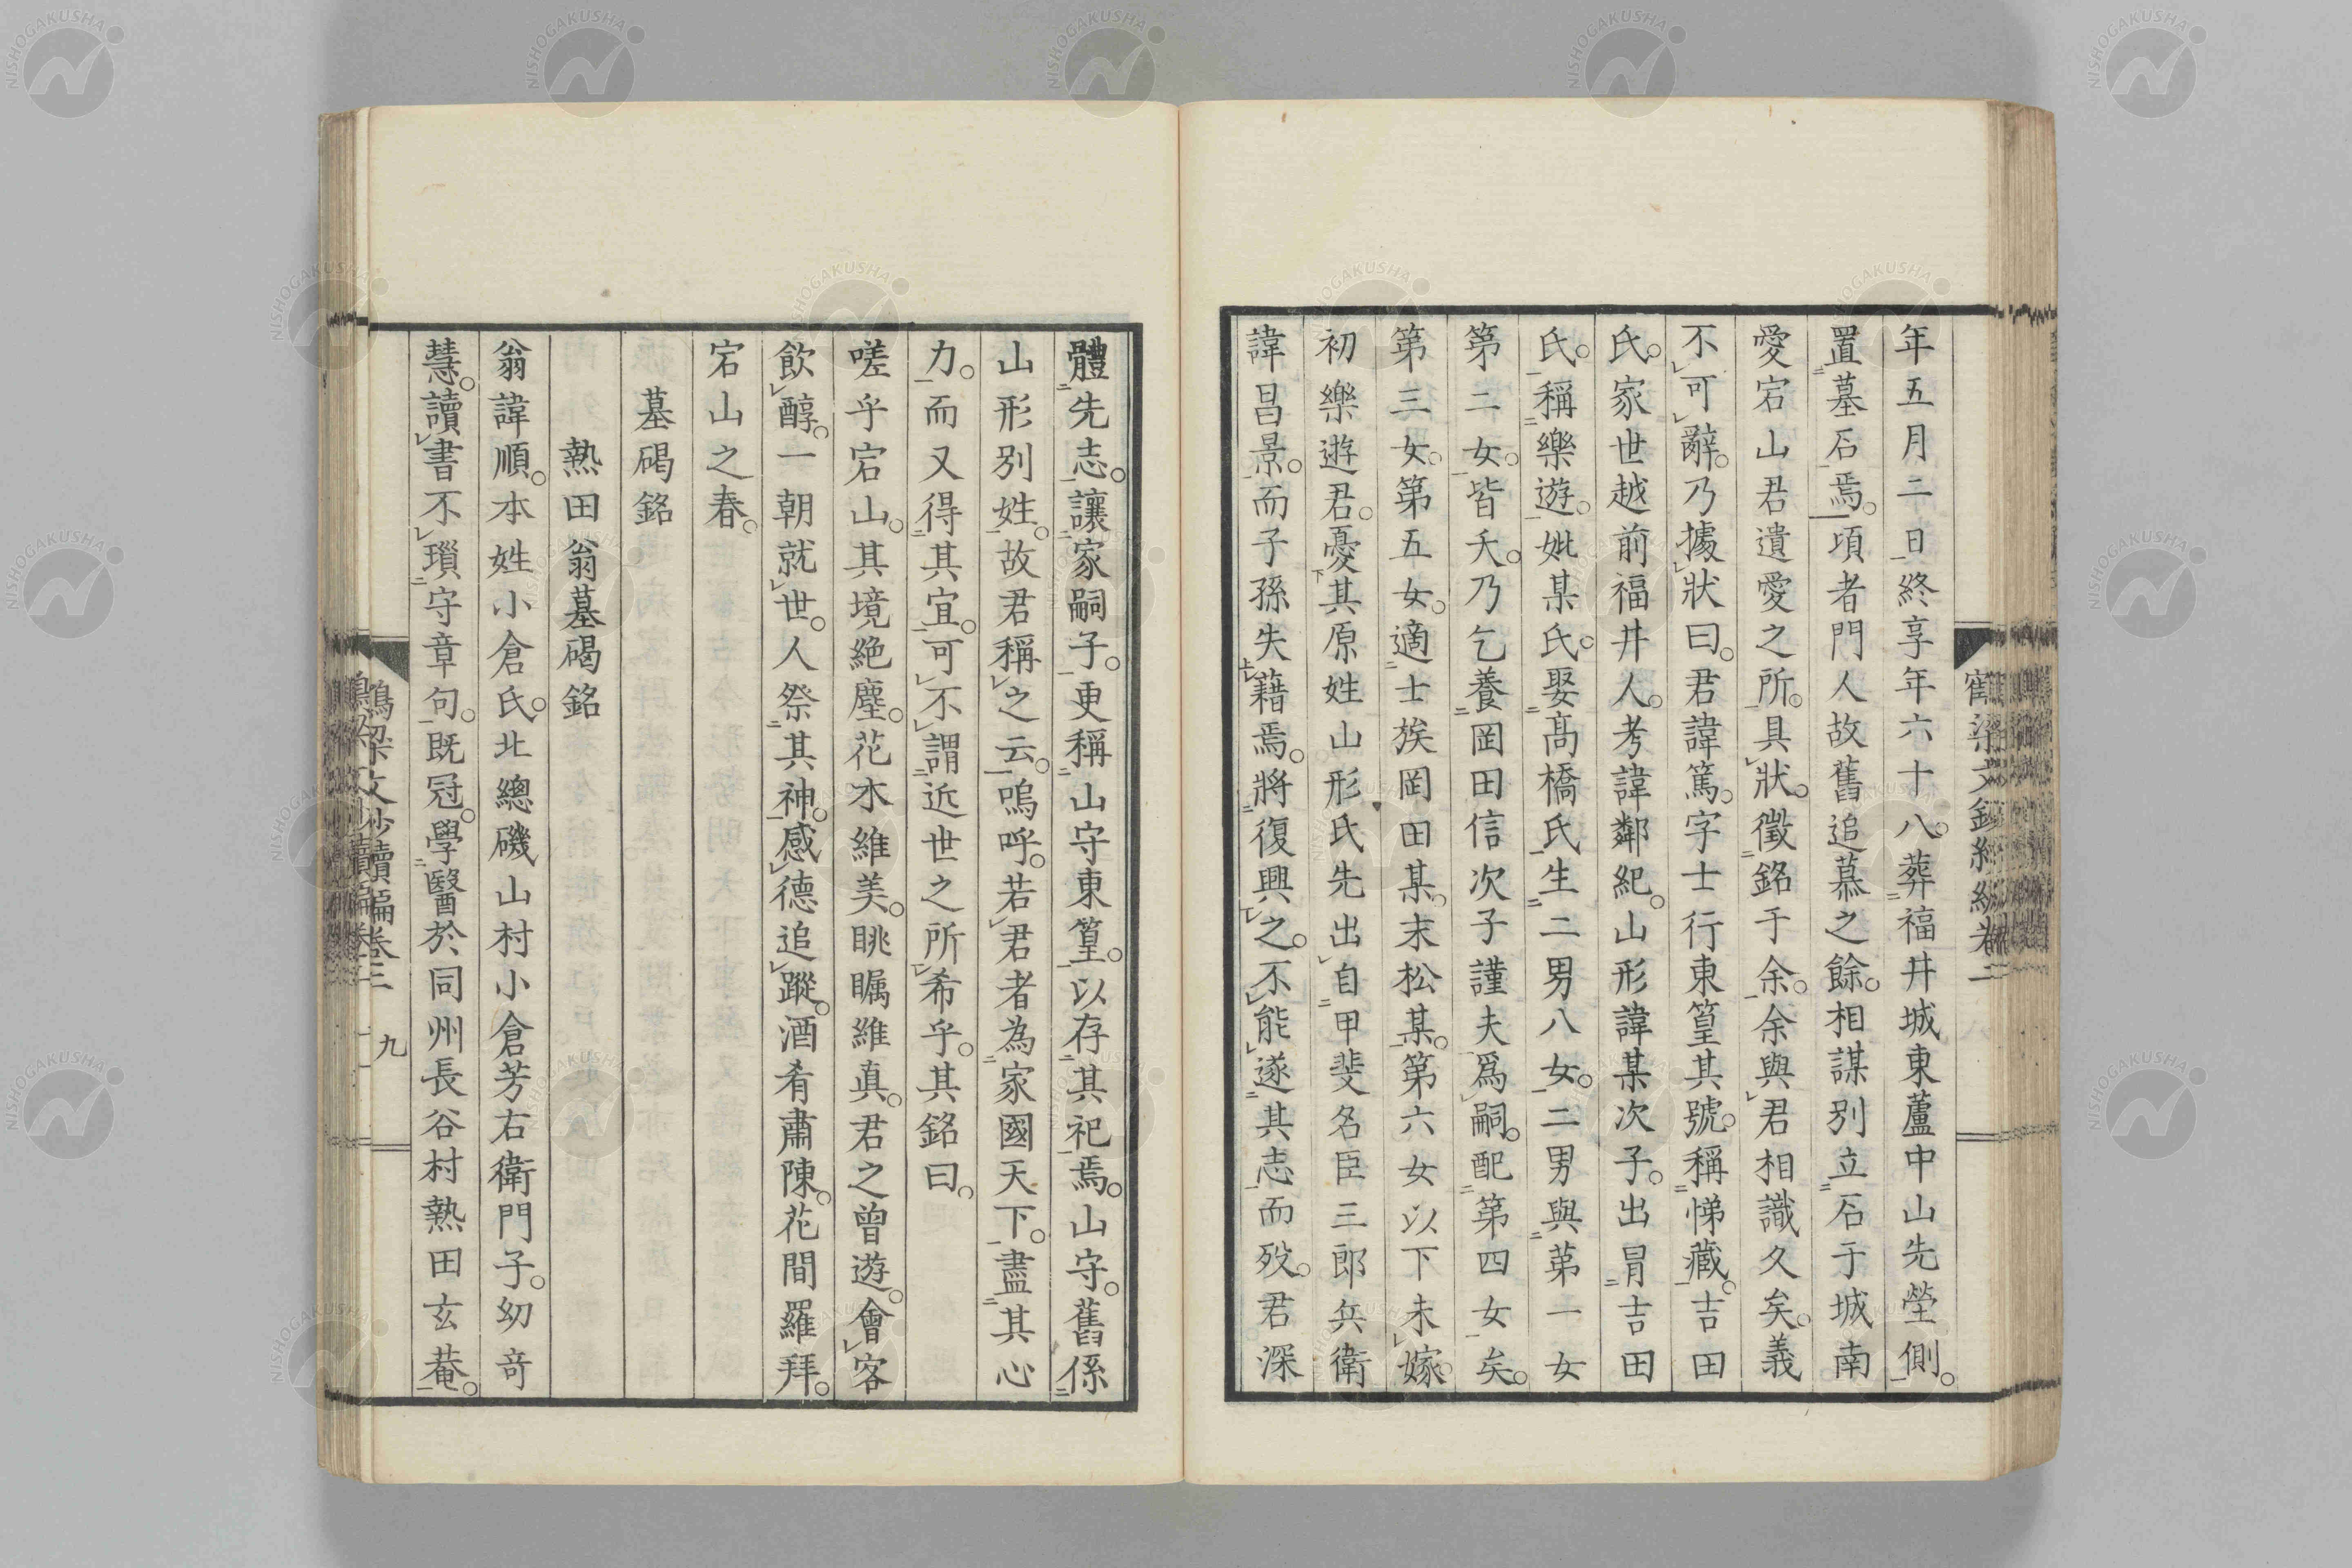 年五月二日終享年六十八。葬福井城東蘆中山先塋側。
置墓石焉。項者門人故舊追慕之餘。相謀別立石于城南
愛宕山君遺愛之所。具狀。徵銘于余。余與君相識久矣。義
不可辭。乃據狀曰。君諱篤。字士行東篁其號。稱悌藏。吉田
氏。家世越前福井人。考諱鄰紀。山形諱某次子。出冐吉田
氏。稱樂遊。妣某氏。娶髙橋氏生二男八女。二男與第一女
第二女。皆夭。乃乞養岡田信次子謹夫爲嗣。配第四女矣。
第三女。第五女。適士族岡田某。末松某。第六女以下未嫁。
初樂遊君。憂其原姓山形氏先出自甲斐名臣三郎兵衛
諱昌景。而子孫失籍焉。將復興之。不能遂其志而歿。君深
體先志。讓家嗣子。更稱山守東篁。以存其祀焉。山守。舊係
山形別姓。故君稱之云。嗚呼。若君者為家國天下。盡其心
力。而又得其宜。可不謂近世之所希乎。其銘曰。
嗟乎宕山。其境絶塵。花木維美。眺矚維真。君之曾遊。會客
飲醇。一朝就世。人祭其神。感德追蹤。酒肴肅陳。花間羅拜。
宕山之春。
墓碣銘
熱田翁墓碣銘
翁諱順。本姓小倉氏。北總磯山村小倉芳右衛門子。幼竒
慧。讀書不瑣守章句。既冠。學醫於同州長谷村熱田玄菴。
九